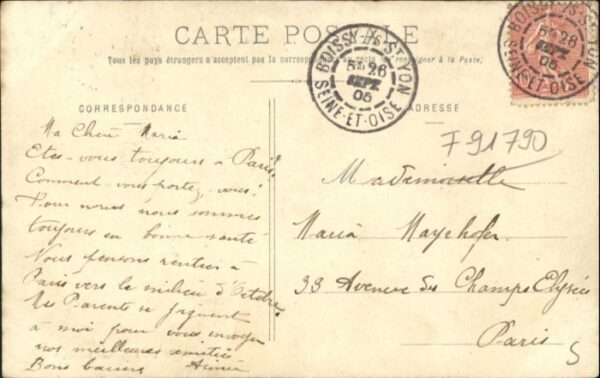 CARTE POSTALE
Tous les pays étrangers n'acceptent pas la correspondance
(se renseigner à la Poste)
BOISSY-S-ST-YON
5E 26
SEPT
05
SEINE-ET-OISE
BOISSY-S-ST-YON
5E 26
SEPT
05
SEINE-ET-OISE
CORRESPONDANCE
ADRESSE
F 91790
Ma Chère Maria
Etes-vous toujours à Paris?
Comment vous portez-vous?
Pour nous nous sommes
toujours en bonne santé
Nous pensons rentrer à
Paris vers le milieu d'Octobre.
Mes Parents se joignent
à moi pour vous envoyer
nos meilleures amitiés
Bons baisers Aimée
Mademoiselle
Maria Mayehofer
33 Avenue des Champs Elysées
Paris
5